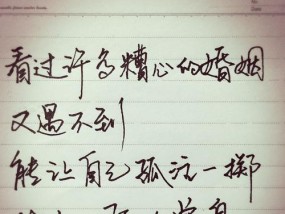 看过许多糟心的婚姻
又遇不到
能让自己孤注一掷